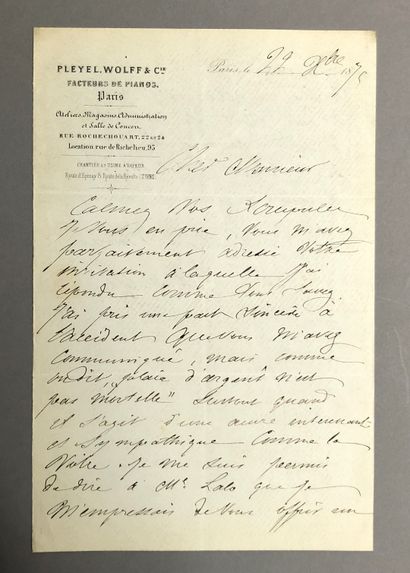 PLEYEL, WOLFF & Cie
FACTEURS DE PIANOS.
Paris
Ateliers, Magasins, Administration
et Salle de Concert,
RUE ROCHECHOUART, 22 et 24
Location rue de Richelieu, 95
Paris, le 22 Xbre 187
Cher Monsieur
Calmez vos scrupules
je vous en prie, vous m'avez
parfaitement adressé votre
invitation à laquelle j'ai
répondu comme vous savez
J'ai pris une part sincère à
l'accident que vous m'avez
communiqué, mais comme
on dit "plaie d'argent n'est
pas mortelle" surtout quand
il s'agit d'une œuvre intéressante
et sympathique comme la
vôtre. Je me suis permis
de dire à Mr. Lalo que je
m'empressais de vous offrir un